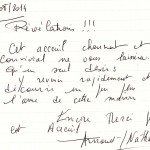 08/2014
Révélation !!!
Cet accueil charmant et
convivial ne vous laissera
qu'un seul désir :
y revenir rapidement et
découvrir un peu plus
l'âme de cette maison
Encore Merci
et Accueil
Arnaud